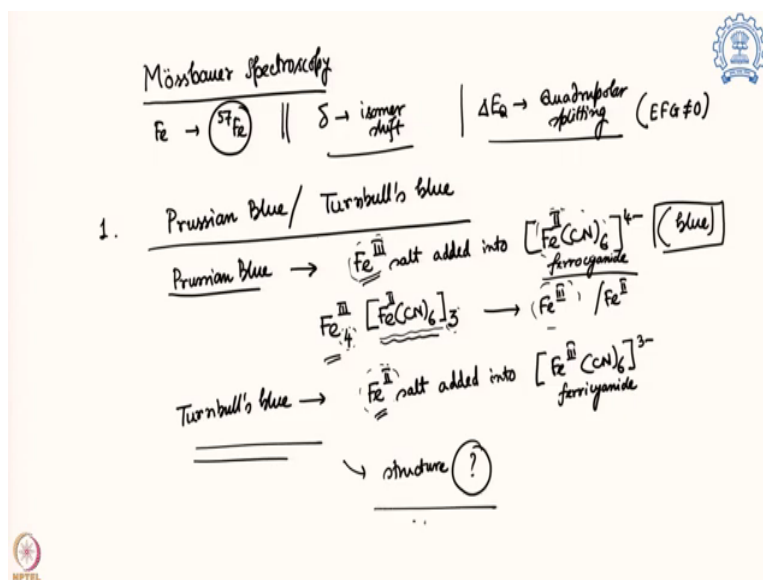 Mössbauer Spectroscopy
Fe → ⁵⁷Fe || δ → isomer shift | ΔE_Q → Quadrupolar splitting (EFG≠0)
1. Prussian Blue / Turnbull's blue
Prussian Blue → Fe^III salt added into [Fe^II(CN)₆]⁴⁻ (blue)
ferrocyanide
Fe^III₄ [Fe^II(CN)₆]₃ → Fe^III / Fe^II
Turnbull's blue → Fe^II salt added into [Fe^III(CN)₆]³⁻
ferricyanide
↘ structure ?
NPTEL